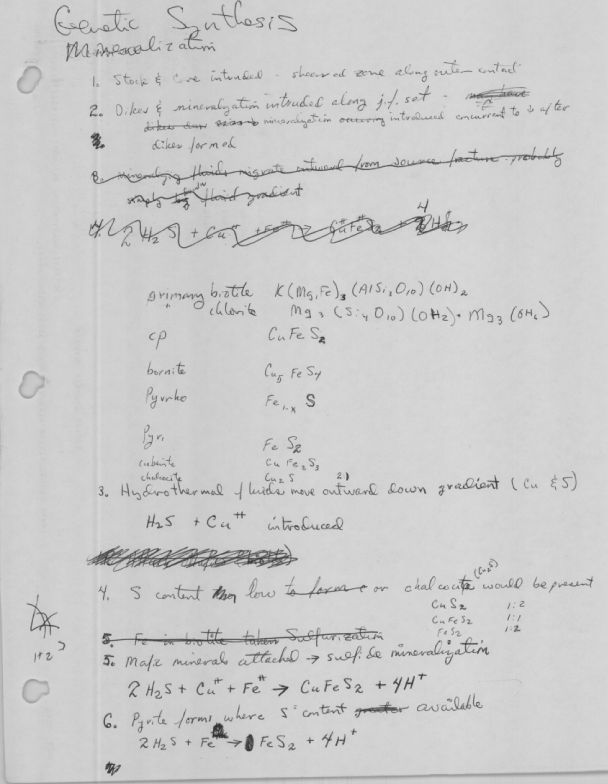 Genetic Synthesis
Mineralization
1. Stock & Core intruded - sheared zone along outer contact
2. Dikes & mineralization intruded along j.f. set -
mineralization introduced concurrent to & after
dikes formed
3. Mineralizing fluids migrate outward from source fracture - probably
simply by fluid gradient
4. 2 H2S + Cu
primary biotite K(Mg,Fe)3 (AlSi3O10) (OH)2
chlorite Mg3 (Si4O10) (OH2) · Mg3 (OH6)
cp CuFeS2
bornite Cu5 FeS4
Pyrrho Fe1-x S
Pyri FeS2
cubanite CuFe2S3
chalcocite Cu2S
3. Hydrothermal fluids move outward down gradient (Cu & S)
H2S + Cu++ introduced
4. S content low to form or chalcocite (Cu2S) would be present
CuS2 1:2
CuFeS2 1:1
FeS2 1:2
5. Fe in biotite taken Sulfurization
5. Mafic minerals attacked → sulfide mineralization
1+2
2H2S + Cu++ + Fe++ → CuFeS2 + 4H+
6. Pyrite forms where S= content greater available
2H2S + Fe → FeS2 + 4H+